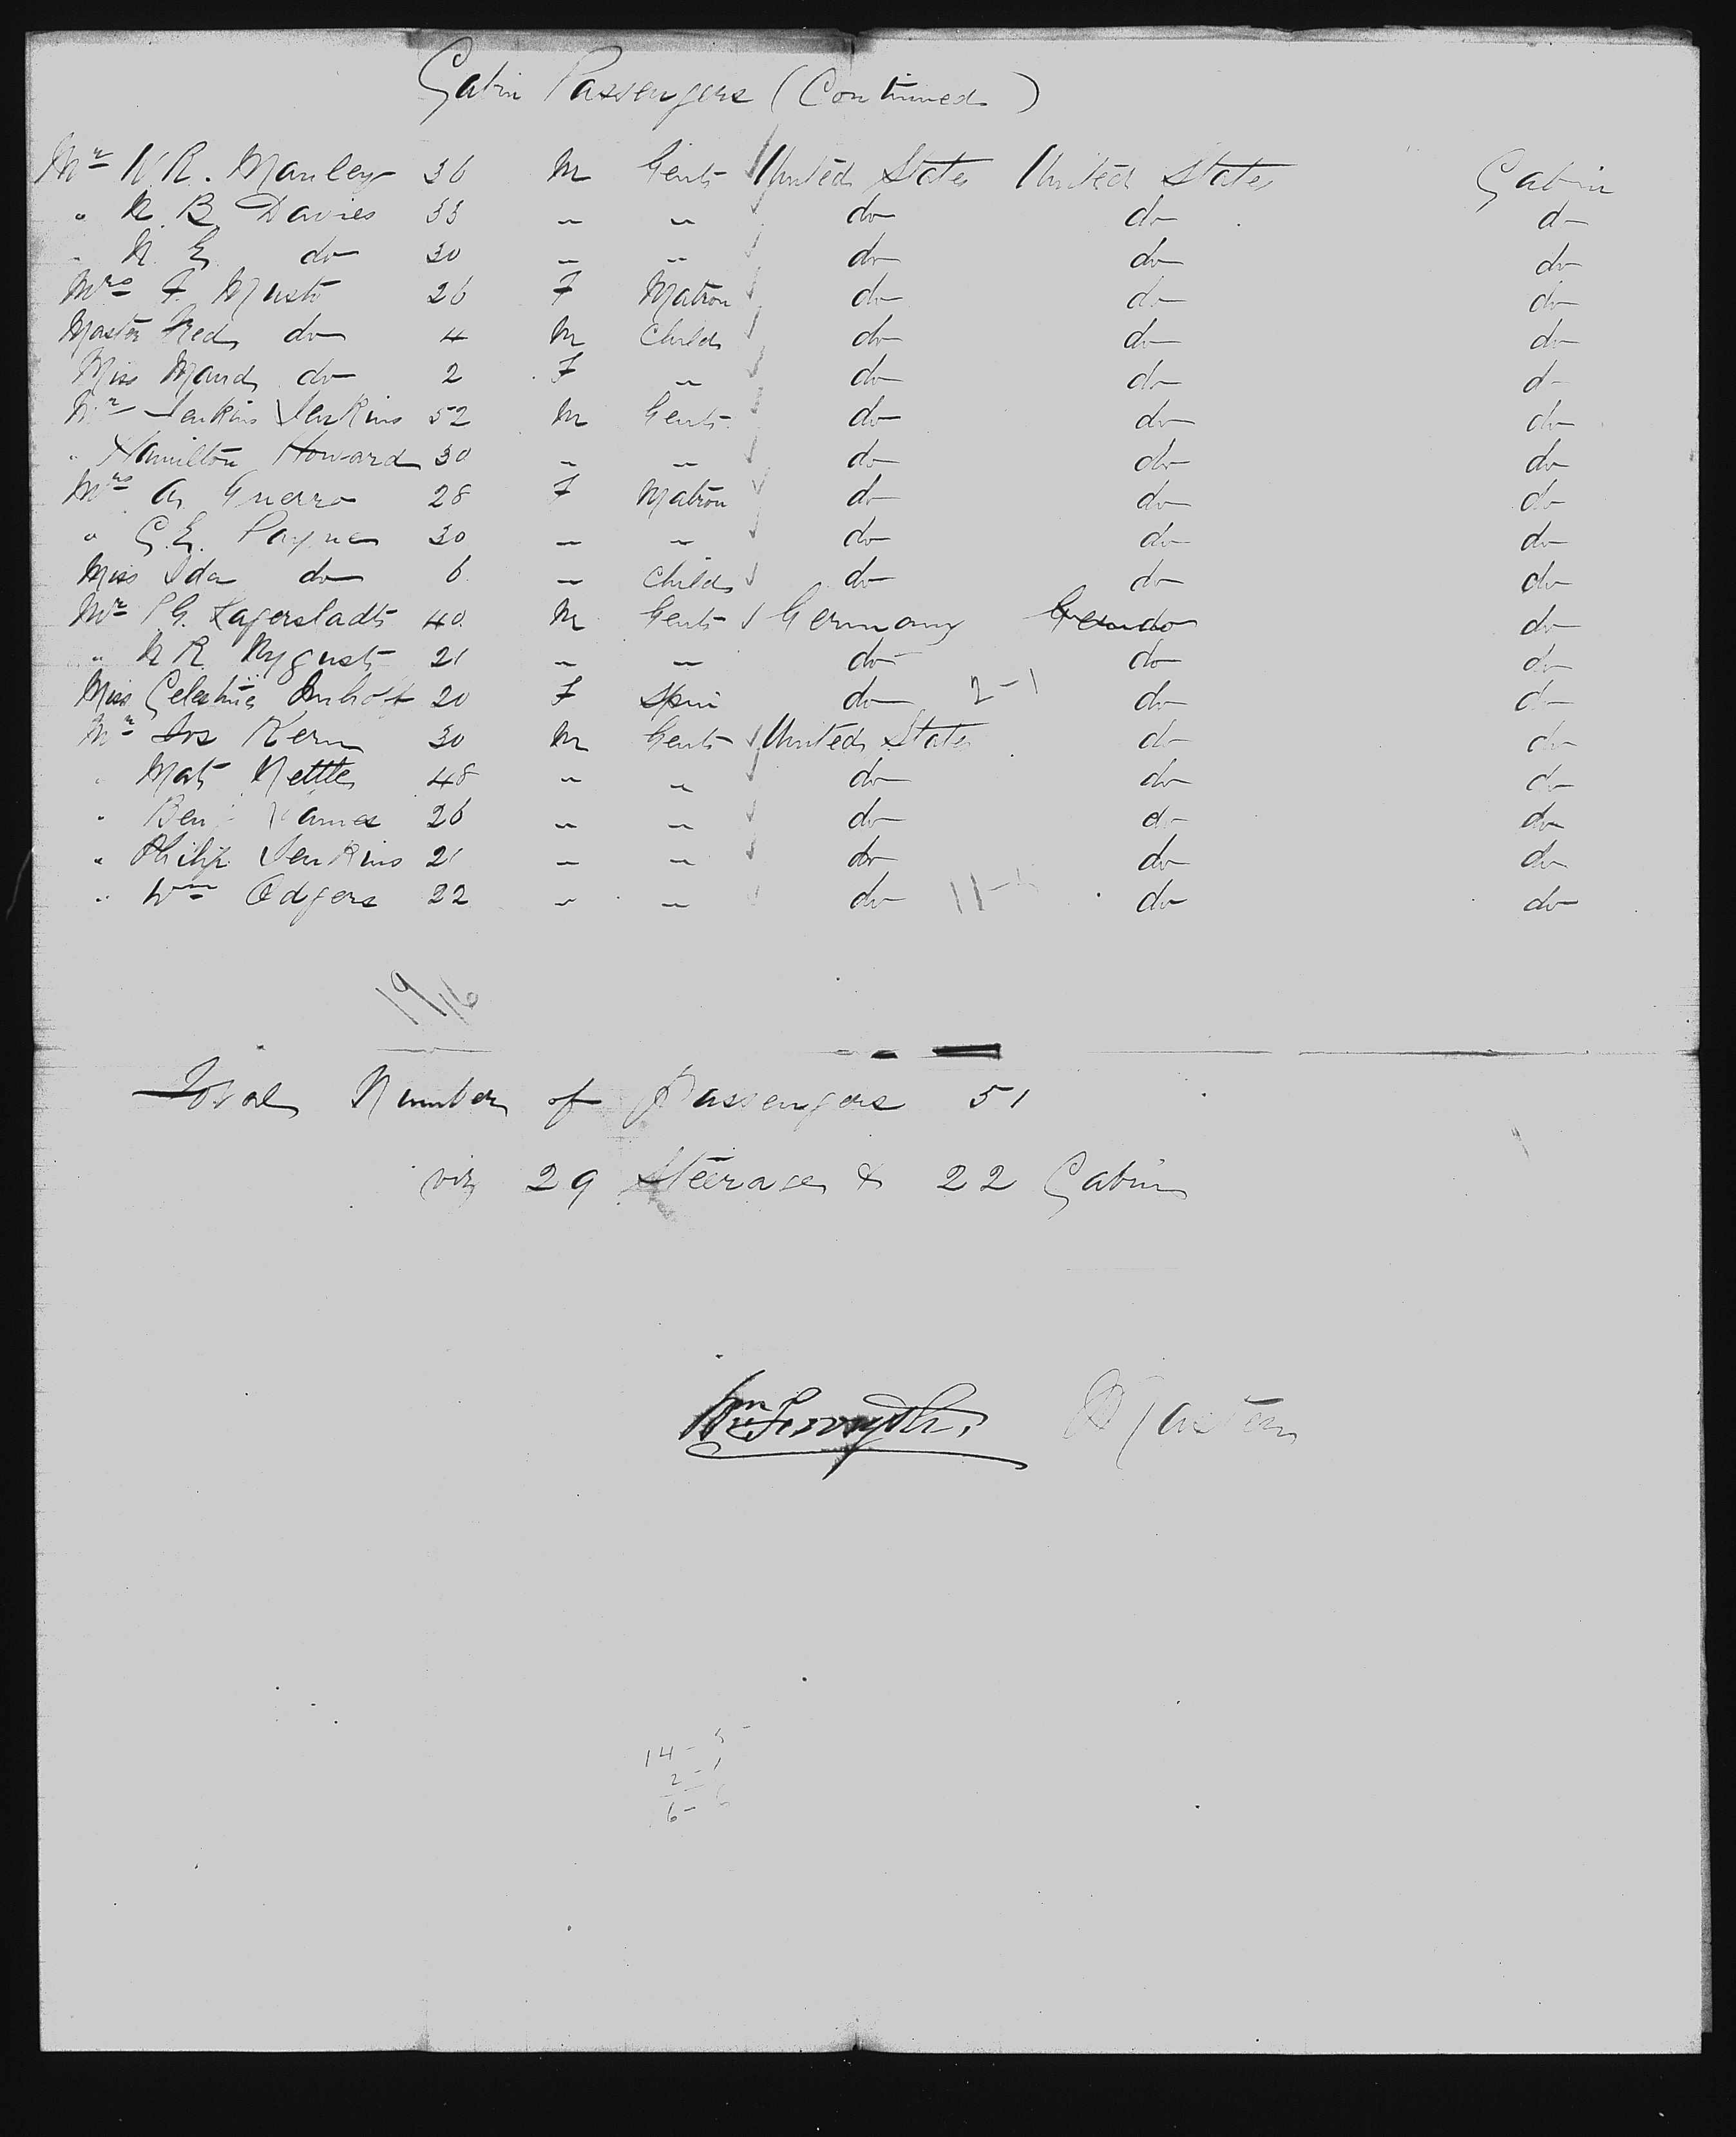 Cabin Passengers (Continued)
Mr N.R. Manley 36 M Gent United States United States Cabin
" N. B. Davies 33 " " do do do
" N. E. do 30 " " do do do
Mrs F. Musto 26 F Matron do do do
Master Fred do 4 M Child do do do
Miss Maud do 2 F " do do do
Mr Jenkin Jenkins 52 M Gent do do do
" Hamilton Howard 30 " " do do do
Mrs A. Guerro 28 F Matron do do do
" C.E. Payne 30 " " do do do
Miss Ida do 6 " Child do do do
Mr P.G. Lagerstadt 40 M Gent Germany do do
" N R. Nyqust 21 " " do do do
Miss Celestine Imhoff 20 F Spin do 2-1 do do
Mr Jos Kern 30 M Gent United States do do
" Mat Nettle 48 " " do do do
" Benj James 26 " " do do do
" Philip Jenkins 21 " " do do do
" Wm Odgers 22 " " do 11- do do
19/16
Total Number of Passengers 51
viz 29 Steerage & 22 Cabin
Wm Forsyth. Master
14- 5
2 - 1
6- 6